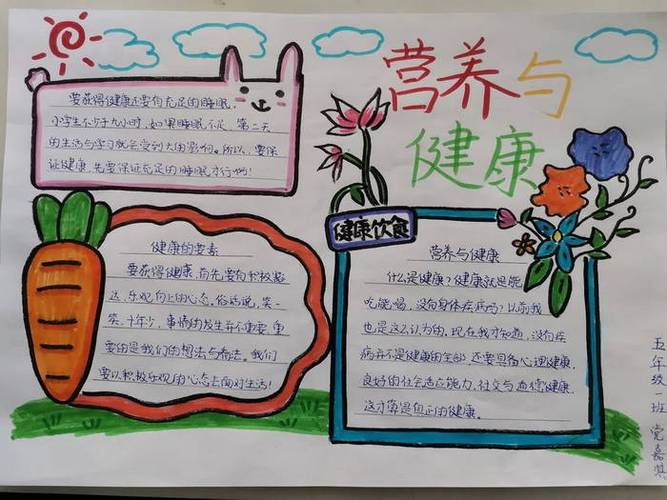 营养与
健康
要获得健康还要有充足的睡眠，
小学生不少于九小时，如果睡眠不足，第二天
的生活与学习就会受到大的影响。所以，要保
证健康，先要保证充足的睡眠才行哟！
健康的要素
要获得健康，首先要有积极
达、乐观向上的心态，俗话说，笑一
笑，十年少，事情的发生并不重要，重
要的是我们的想法与看法。我们
要以积极乐观的心态去面对生活！
健康饮食
营养与健康
什么是健康？健康就是能
吃能喝，没有身体疾病吗？以前我
也是这么认为的。现在我才知道，没有疾
病并不是健康的全部，还要具备心理健康，
良好的社会适应能力，社交与道德健康
这才算是真正的健康。
五年级一班 党嘉淇